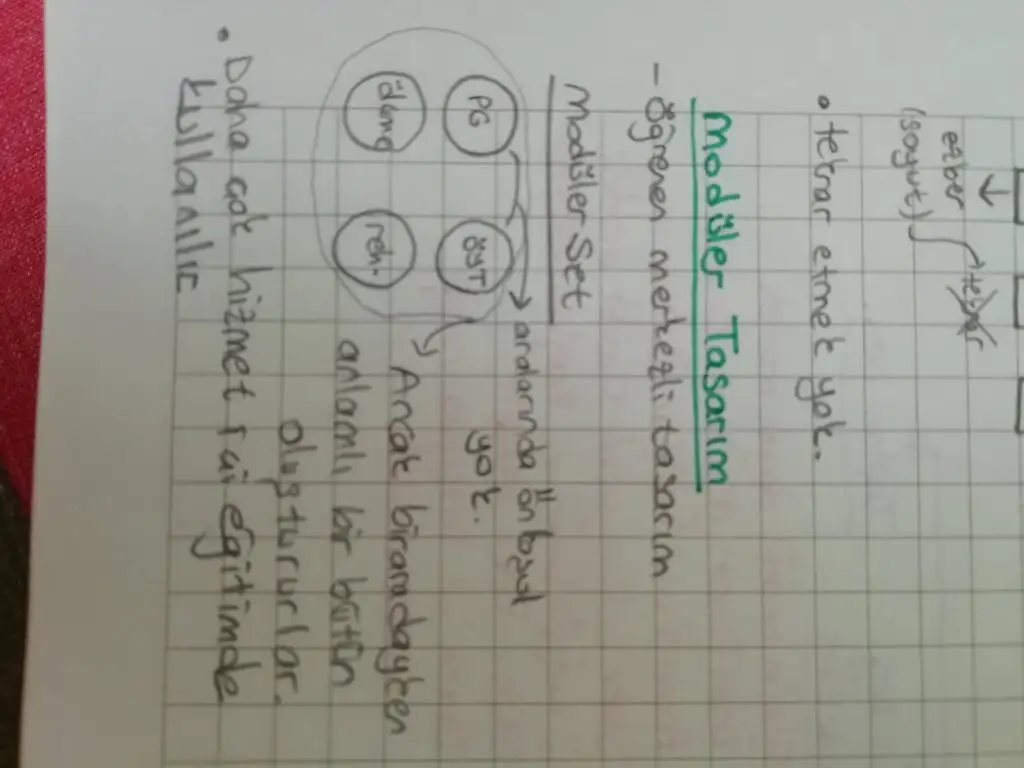 ezber
(soyut)
• tekrar etmek yok.
Modüler Tasarım
- öğrenen merkezli tasarım
Modüler Set
PG
ÖYT
ölçme
reh.
aralarında önkoşul
yok.
Ancak biraradayken
anlamlı bir bütün
oluştururlar.
• Daha çok hizmet içi eğitimde
kullanılır